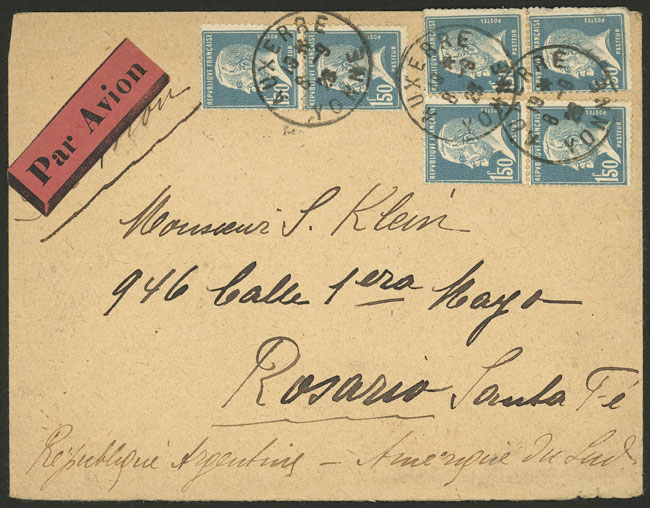 Par Avion
RÉPUBLIQUE FRANÇAISE POSTES PASTEUR 1f50
RÉPUBLIQUE FRANÇAISE POSTES PASTEUR 1f50
RÉPUBLIQUE FRANÇAISE POSTES PASTEUR 1f50
RÉPUBLIQUE FRANÇAISE POSTES PASTEUR 1f50
RÉPUBLIQUE FRANÇAISE POSTES PASTEUR 1f50
RÉPUBLIQUE FRANÇAISE POSTES PASTEUR 1f50
AUXERRE YONNE
AUXERRE YONNE
AUXERRE YONNE
Monsieur S. Klein
946 Calle 1era Mayo
Rosario Santa Fé
République Argentine - Amérique du Sud